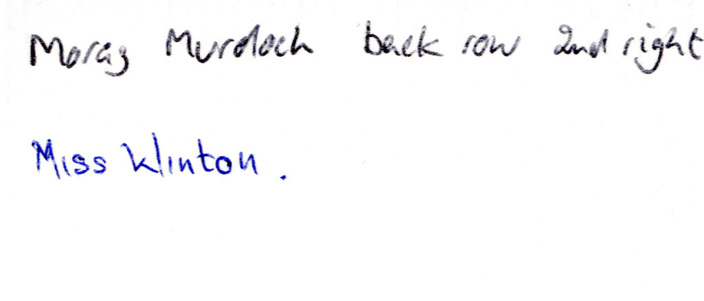 Morag Murdoch back row 2nd right
Miss Klinton.